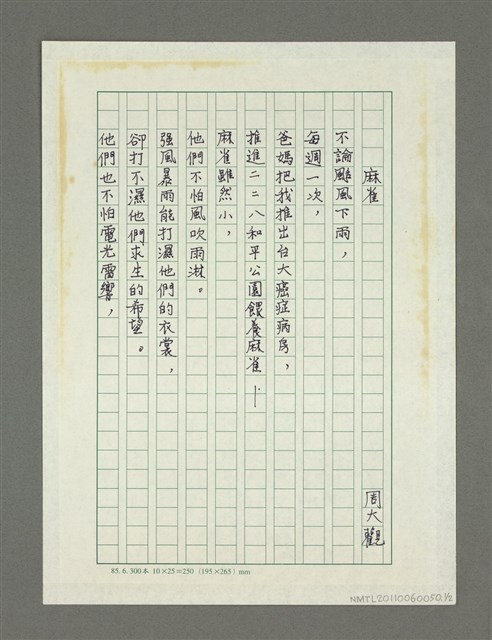 麻雀
周大觀
不論颱風下雨，
每週一次，
爸媽把我推出台大癌症病房，
推進二二八和平公園餵養麻雀—
麻雀雖然小，
他們不怕風吹雨淋。
强風暴雨能打濕他們的衣裳，
卻打不濕他們求生的希望。
他們也不怕電光雷響，
85. 6. 300本 10×25=250 (195×265) mm
NMTL20110060050.1/2